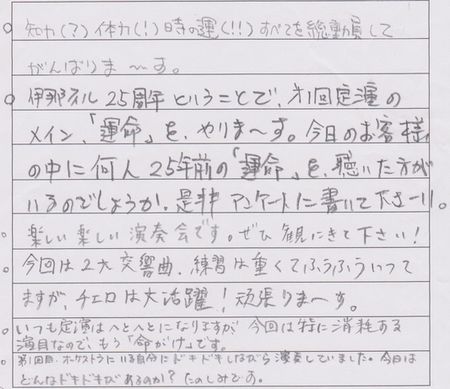 ○ 知力(?)体力(!)時の運(!!)すべてを総動員して
がんばりま〜す。
○ 伊那フィル25周年ということで、オ1回定演の
メイン、「運命」を、やりま〜す。今日のお客様
の中に何人25年前の「運命」を、聴いた方が
いるのでしょうか、是非アンケートに書いて下さーい。
○ 楽しい楽しい演奏会です。ぜひ観にきて下さい！
○ 今回は2大交響曲、練習は重くてふうふういって
ますが、チェロは大活躍！頑張りま〜す。
○ いつも定演はへとへとになりますが今回は特に消耗する
演目なので、もう「命がけ」です。
○ 第1回目、オーケストラにいる自分にドキドキしながら演奏していました。今日は
どんなドキドキがあるのか？たのしみです。